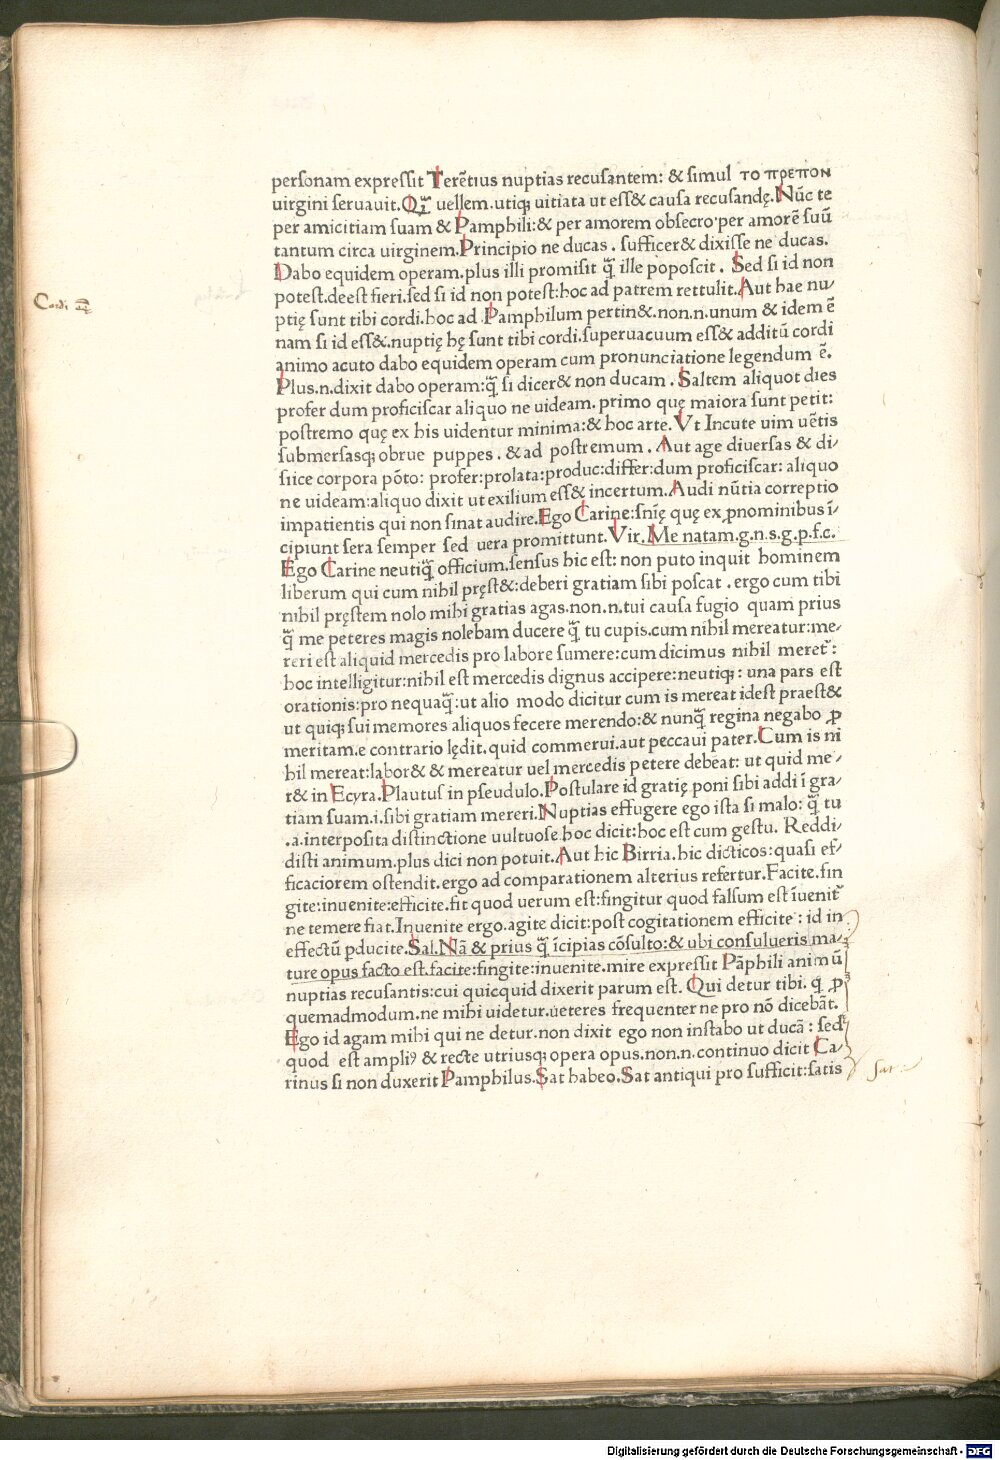 personam expressit Terētius nuptias recusantem: & simul το πρεπον
uirgini seruauit.Qɜ̄ uellem.utiqꝫ uitiata ut ess& causa recusandę.Nūc te
per amicitiam suam & Pamphili:& per amorem obsecro·per amorē suū
tantum circa uirginem.Principio ne ducas . sufficer& dixisse ne ducas.
Dabo equidem operam.plus illi promisit q̄ ille poposcit . Sed si id non
potest.deest fieri.sed si id non potest:hoc ad patrem rettulit.Aut hae nu/
ptię sunt tibi cordi.hoc ad Pamphilum pertin&.non.n.unum & idem ē
nam si id ess&.nuptię hę sunt tibi cordi.superuacuum ess& additū cordi
animo acuto dabo equidem operam cum pronunciatione legendum ē.
Plus.n.dixit dabo operam:q̄ si dicer& non ducam . Saltem aliquot dies
profer dum proficiscar aliquo ne uideam. primo quę maiora sunt petit:
postremo quę ex his uidentur minima:& hoc arte. Vt Incute uim uētis
submersasqꝫ obrue puppes . & ad postremum . Aut age diuersas & di/
siice corpora pōto: profer:prolata:produc:differ:dum proficiscar: aliquo
ne uideam:aliquo dixit ut exilium ess& incertum.Audi nūtia correptio
impatientis qui non sinat audire.Ego Carine:snię quę ex ꝓnominibus ī/
cipiunt sera semper sed uera promittunt.Vir. Me natam.g.n.s.g.p.f.c.
Ego Carine neutiq̄ officium.sensus hic est: non puto inquit hominem
liberum qui cum nihil pręst&:deberi gratiam sibi poscat . ergo cum tibi
nihil pręstem nolo mihi gratias agas.non.n.tui causa fugio quam prius
q̄ me peteres magis nolebam ducere q̄ tu cupis.cum nihil mereatur:me/
reri est aliquid mercedis pro labore sumere:cum dicimus nihil meret̃ :
hoc intelligitur:nihil est mercedis dignus accipere:neutiqꝫ : una pars est
orationis:pro nequaq̄:ut alio modo dicitur cum is mereat idest praest&
ut quiqꝫ sui memores aliquos fecere merendo:& nunq̄ regina negabo ꝓ
meritam.e contrario lędit.quid commerui.aut peccaui pater.Cum is ni
hil mereat:labor& & mereatur uel mercedis petere debeat: ut quid me /
r& in Ecyra.Plautus in pseudulo.Postulare id gratię poni sibi addi ī gra/
tiam suam.i.sibi gratiam mereri.Nuptias effugere ego ista si malo: q̄ tu
.a.interposita distinctione uultuose hoc dicit:hoc est cum gestu. Reddi/
disti animum.plus dici non potuit.Aut hic Birria.hic dicticos:quasi ef/
ficaciorem ostendit.ergo ad comparationem alterius refertur.Facite.fin
gite:inuenite:efficite.fit quod uerum est:fingitur quod falsum est īuenit̃
ne temere fiat.Inuenite ergo.agite dicit:post cogitationem efficite : id in
effectū ꝑducite.Sal.Nā & prius q̄ īcipias cōsulto:& ubi consulueris ma/
ture opus facto est.facite:fingite:inuenite.mire expressit Pāphili animū
nuptias recusantis:cui quicquid dixerit parum est. Qui detur tibi. q̨ ꝓ
quemadmodum.ne mihi uidetur.ueteres frequenter ne pro nō dicebāt.
Ego id agam mihi qui ne detur.non dixit ego non instabo ut ducā : sed
quod est ampliꝰ & recte utriusqꝫ opera opus.non.n.continuo dicit Ca/
rinus si non duxerit Pamphilus.Sat habeo.Sat antiqui pro sufficit:satis
Sat
Digitalisierung gefördert durch die Deutsche Forschungsgemeinschaft - DFG